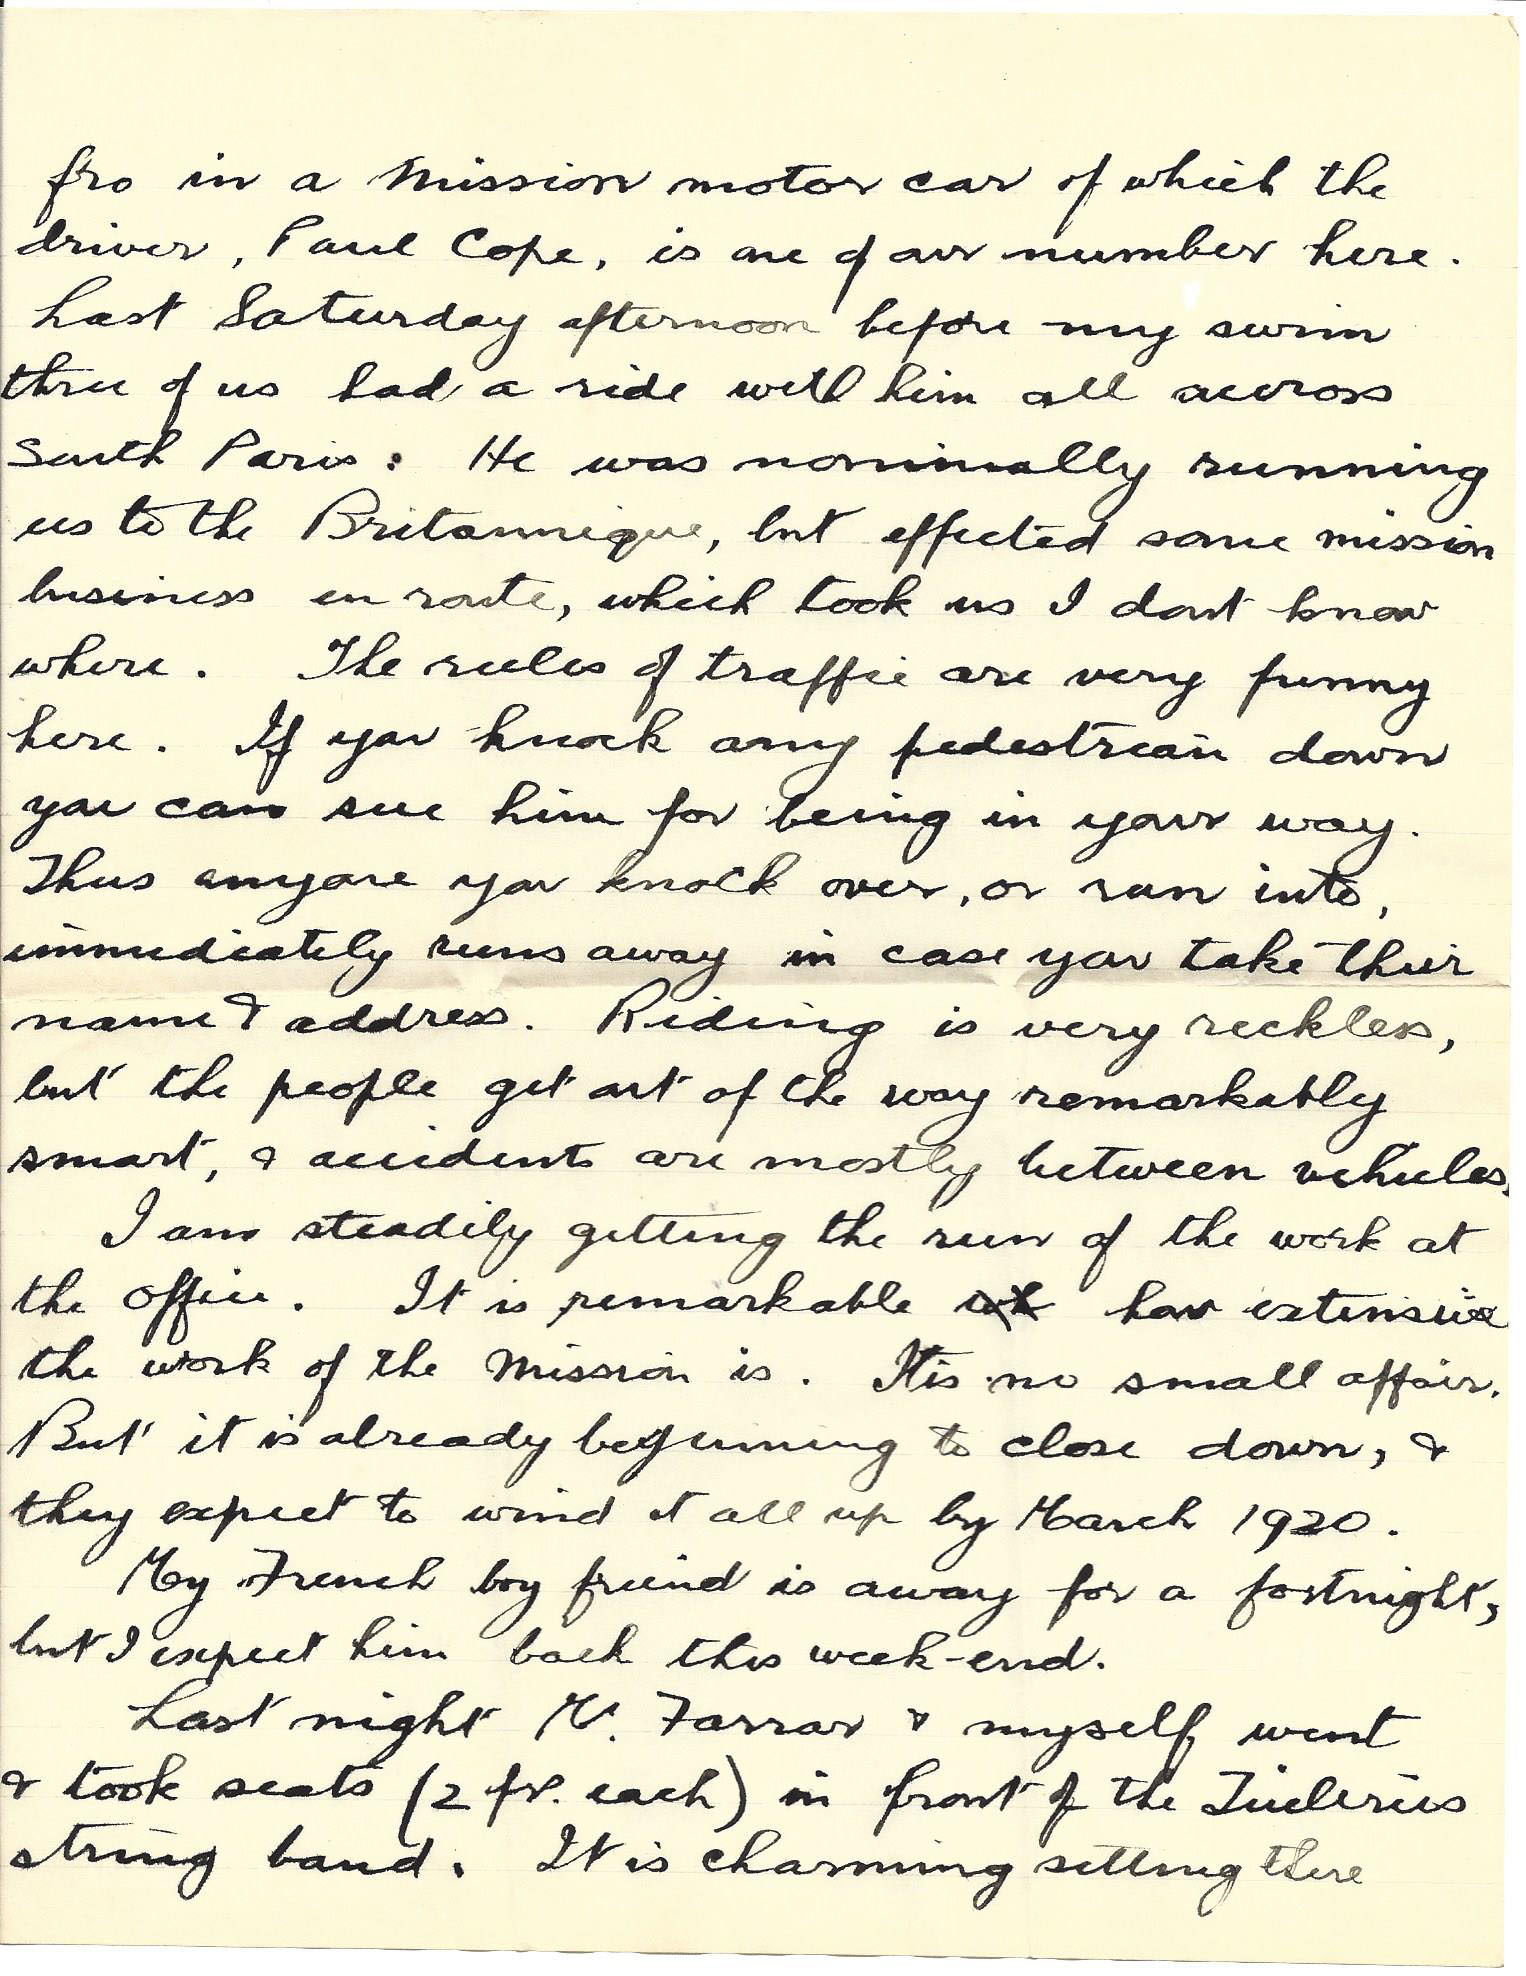 fro in a Mission motor car of which the
driver, Paul Cope, is one of our number here.
Last Saturday afternoon before my swim
three of us had a ride with him all across
South Paris: He was nominally running
us to the Britannique, but effected some mission
business en route, which took us I dont know
where. The rules of traffic are very funny
here. If you knock any pedestrian down
you can sue him for being in your way.
Thus anyone you knock over, or run into,
immediately runs away in case you take their
name & address. Riding is very reckless,
but the people get out of the way remarkably
smart, & accidents are mostly between vehicles.
I am steadily getting the run of the work at
the office. It is remarkable how extensive
the work of the Mission is. It is no small affair.
But it is already beginning to close down, &
they expect to wind it all up by March 1920.
My French boy friend is away for a fortnight,
but I expect him back this week-end.
Last night Mr. Farrar & myself went
& took seats (2 fr. each) in front of the Tuileries
string band. It is charming setting there